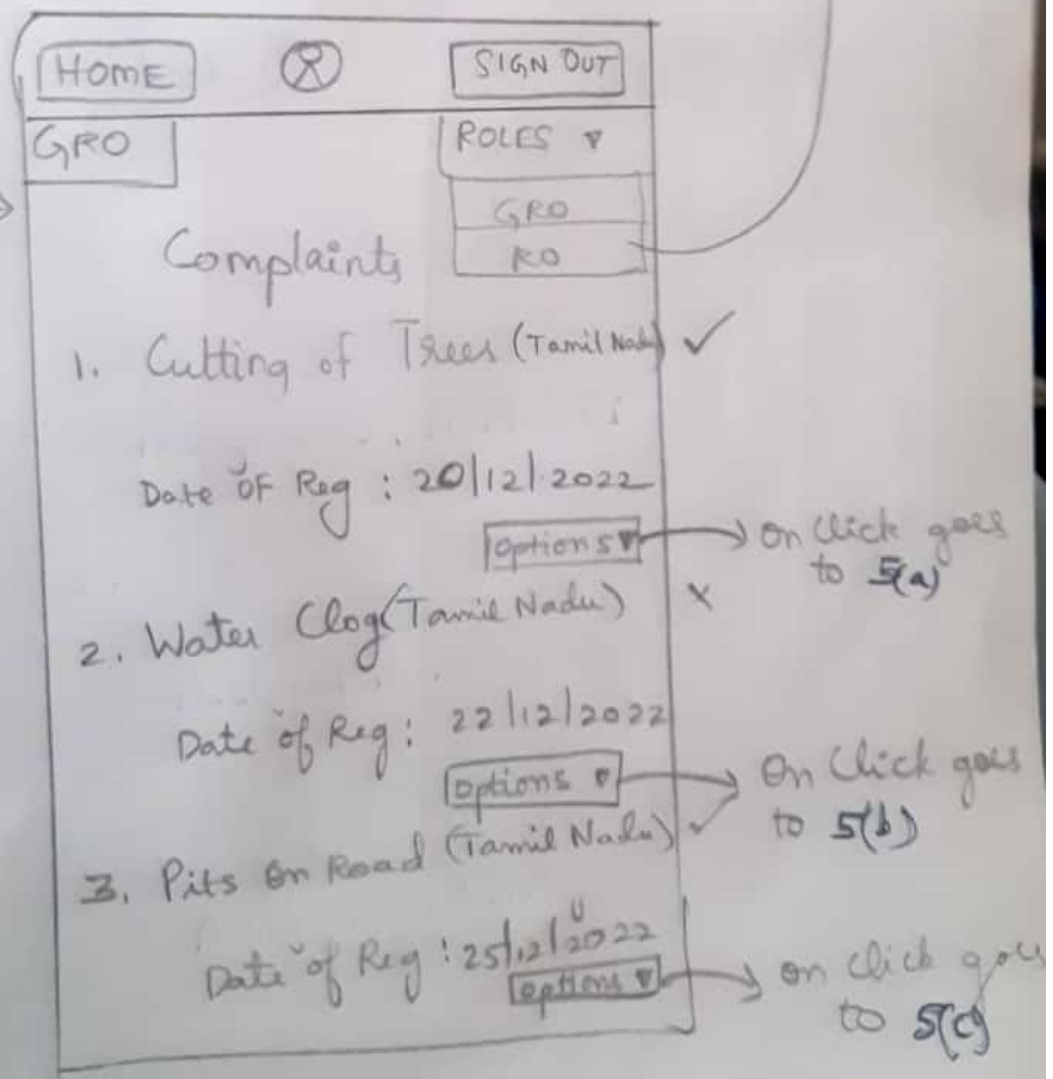 HOME SIGN OUT
GRO ROLES ▾
GRO
RO
Complaints
1. Cutting of Trees (Tamil Nadu) ✓
Date OF Reg : 20/12/2022
Options ▾ On Click goes
to 5(a)
2. Water Clog (Tamil Nadu) x
Date of Reg : 22/12/2022
Options ▾ On Click goes
to 5(b)
3. Pits On Road (Tamil Nadu) ✓
Date of Reg : 25/12/2022
Options ▾ on click goes
to 5(c)